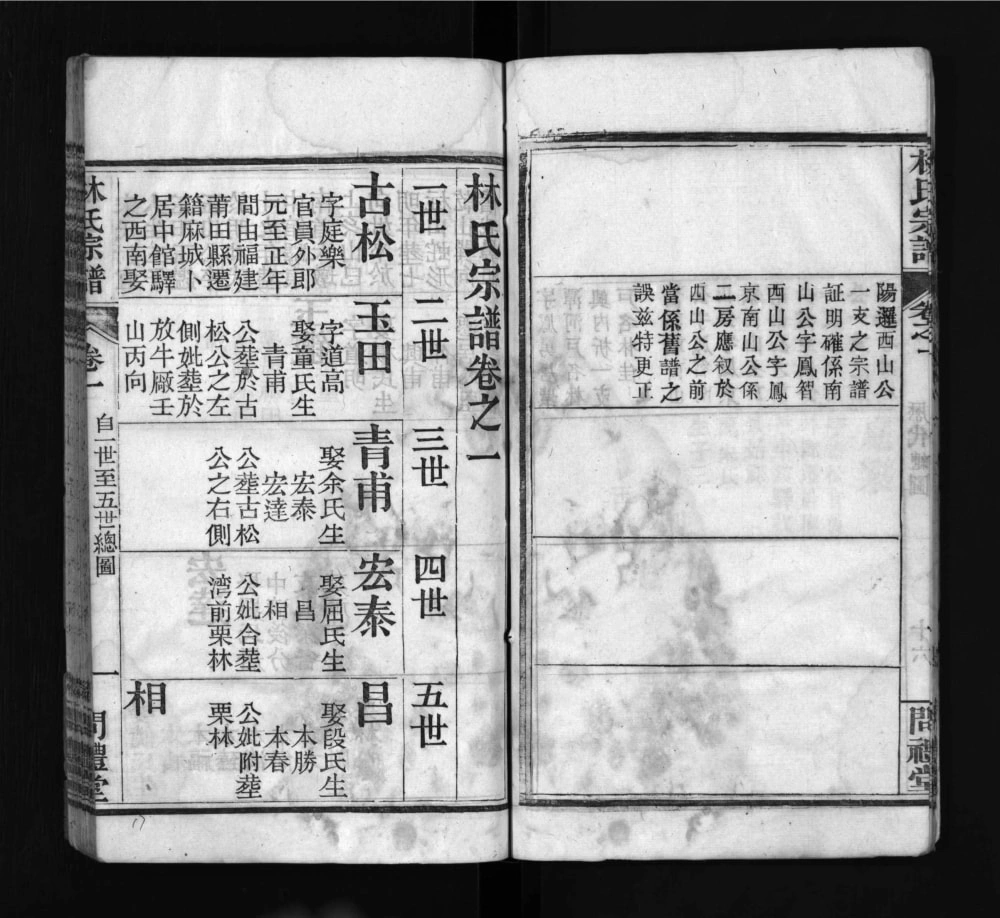 林氏宗譜
卷之一
問禮堂
陽邏西山公
一支之宗譜
証明確係南
山公字鳳智
西山公字鳳
京南山公係
二房應叙於
西山公之前
當係舊譜之
誤兹特更正
林氏宗譜卷之一
一世
二世
三世
四世
五世
古松
字庭樂
官員外郎
元至正年
間由福建
莆田縣遷
籍麻城卜
居中館驛
之西南娶
玉田
字道高
娶童氏生
青甫
公塟於古
松公之左
側妣塟於
放牛厰壬
山丙向
青甫
娶余氏生
宏泰
宏達
公塟古松
公之右側
宏泰
娶屈氏生
昌
相
公妣合塟
湾前栗林
昌
娶段氏生
本勝
本春
公妣附塟
栗林
相
林氏宗譜
卷一
自一世至五世總圖
一
問禮堂